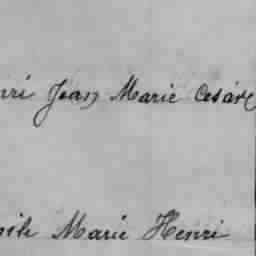 nri Jean Marie Cesáre
Marie Henri